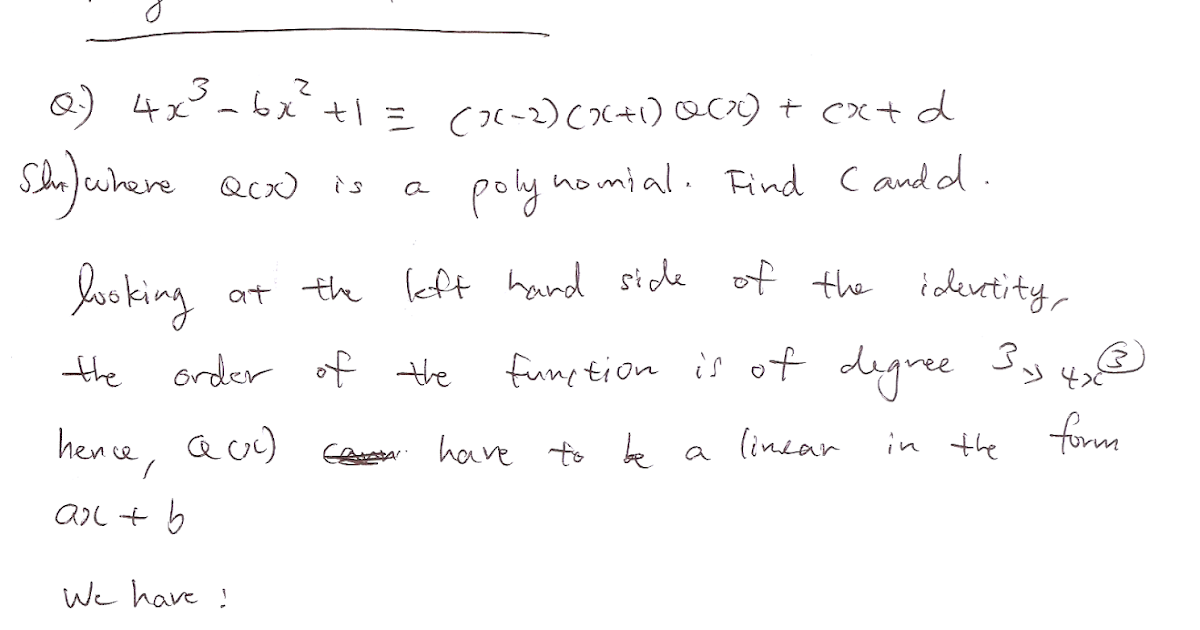 Q.) 4x³ - 6x² + 1 ≡ (x-2)(x+1) Q(x) + cx + d
Soln) where Q(x) is a polynomial. Find C and d.
looking at the left hand side of the identity,
the order of the function is of degree 3, 4x³
hence, Q(x) have to be a linear in the form
ax + b
We have :